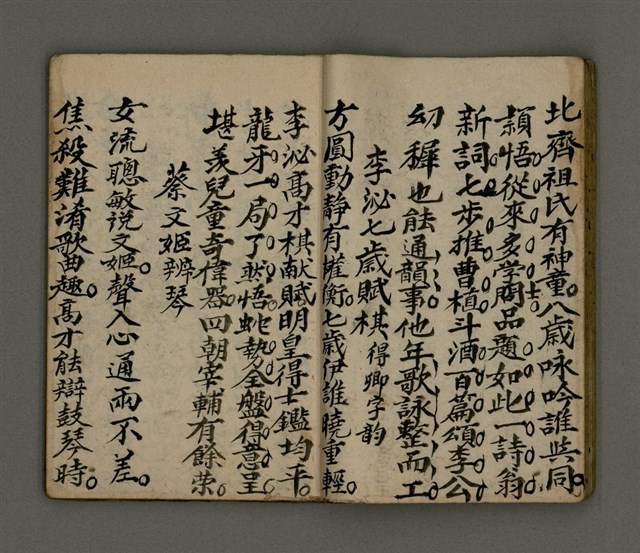 北齊祖氏有神童。八歲咏吟誰與同。
穎悟從來多学問。品題如此一詩翁。
新詞七步推曹植。斗酒百篇頌李公。
幼穉也能通韻事。他年歌詠整而工。
李泌七歲賦棋 得卿字韵
方圓動静有權衡。七歲伊誰曉重輕。
李泌高才棋献賦。明皇得士鑑均平。
龍牙一局了然悟。蛇勢全盤得意呈。
堪羡兒童奇偉器。四朝宰輔有餘荣。
蔡文姬辨琴
女流聰敏説文姬。聲入心通兩不差。
焦殺難淆歌曲趣。高才能辯鼓琴時。